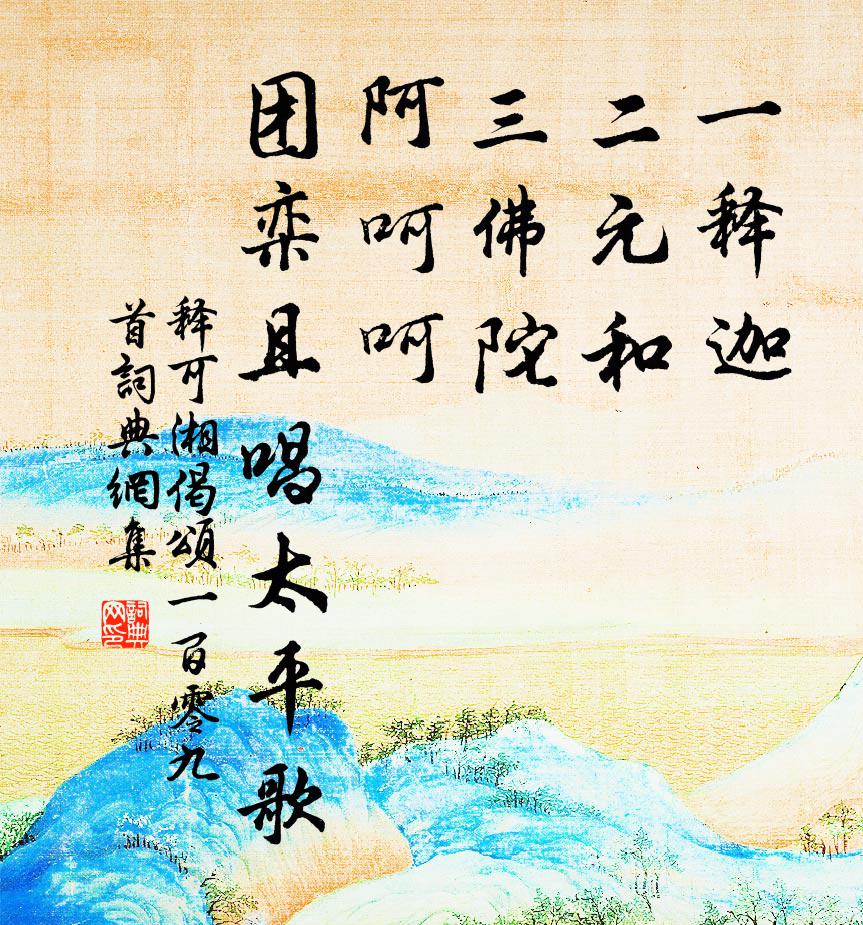 一释迦
二元和
三佛陀
阿呵呵
团栾且唱太平歌
释可湘偈颂一百零九
首詞典網集
詞典
网印